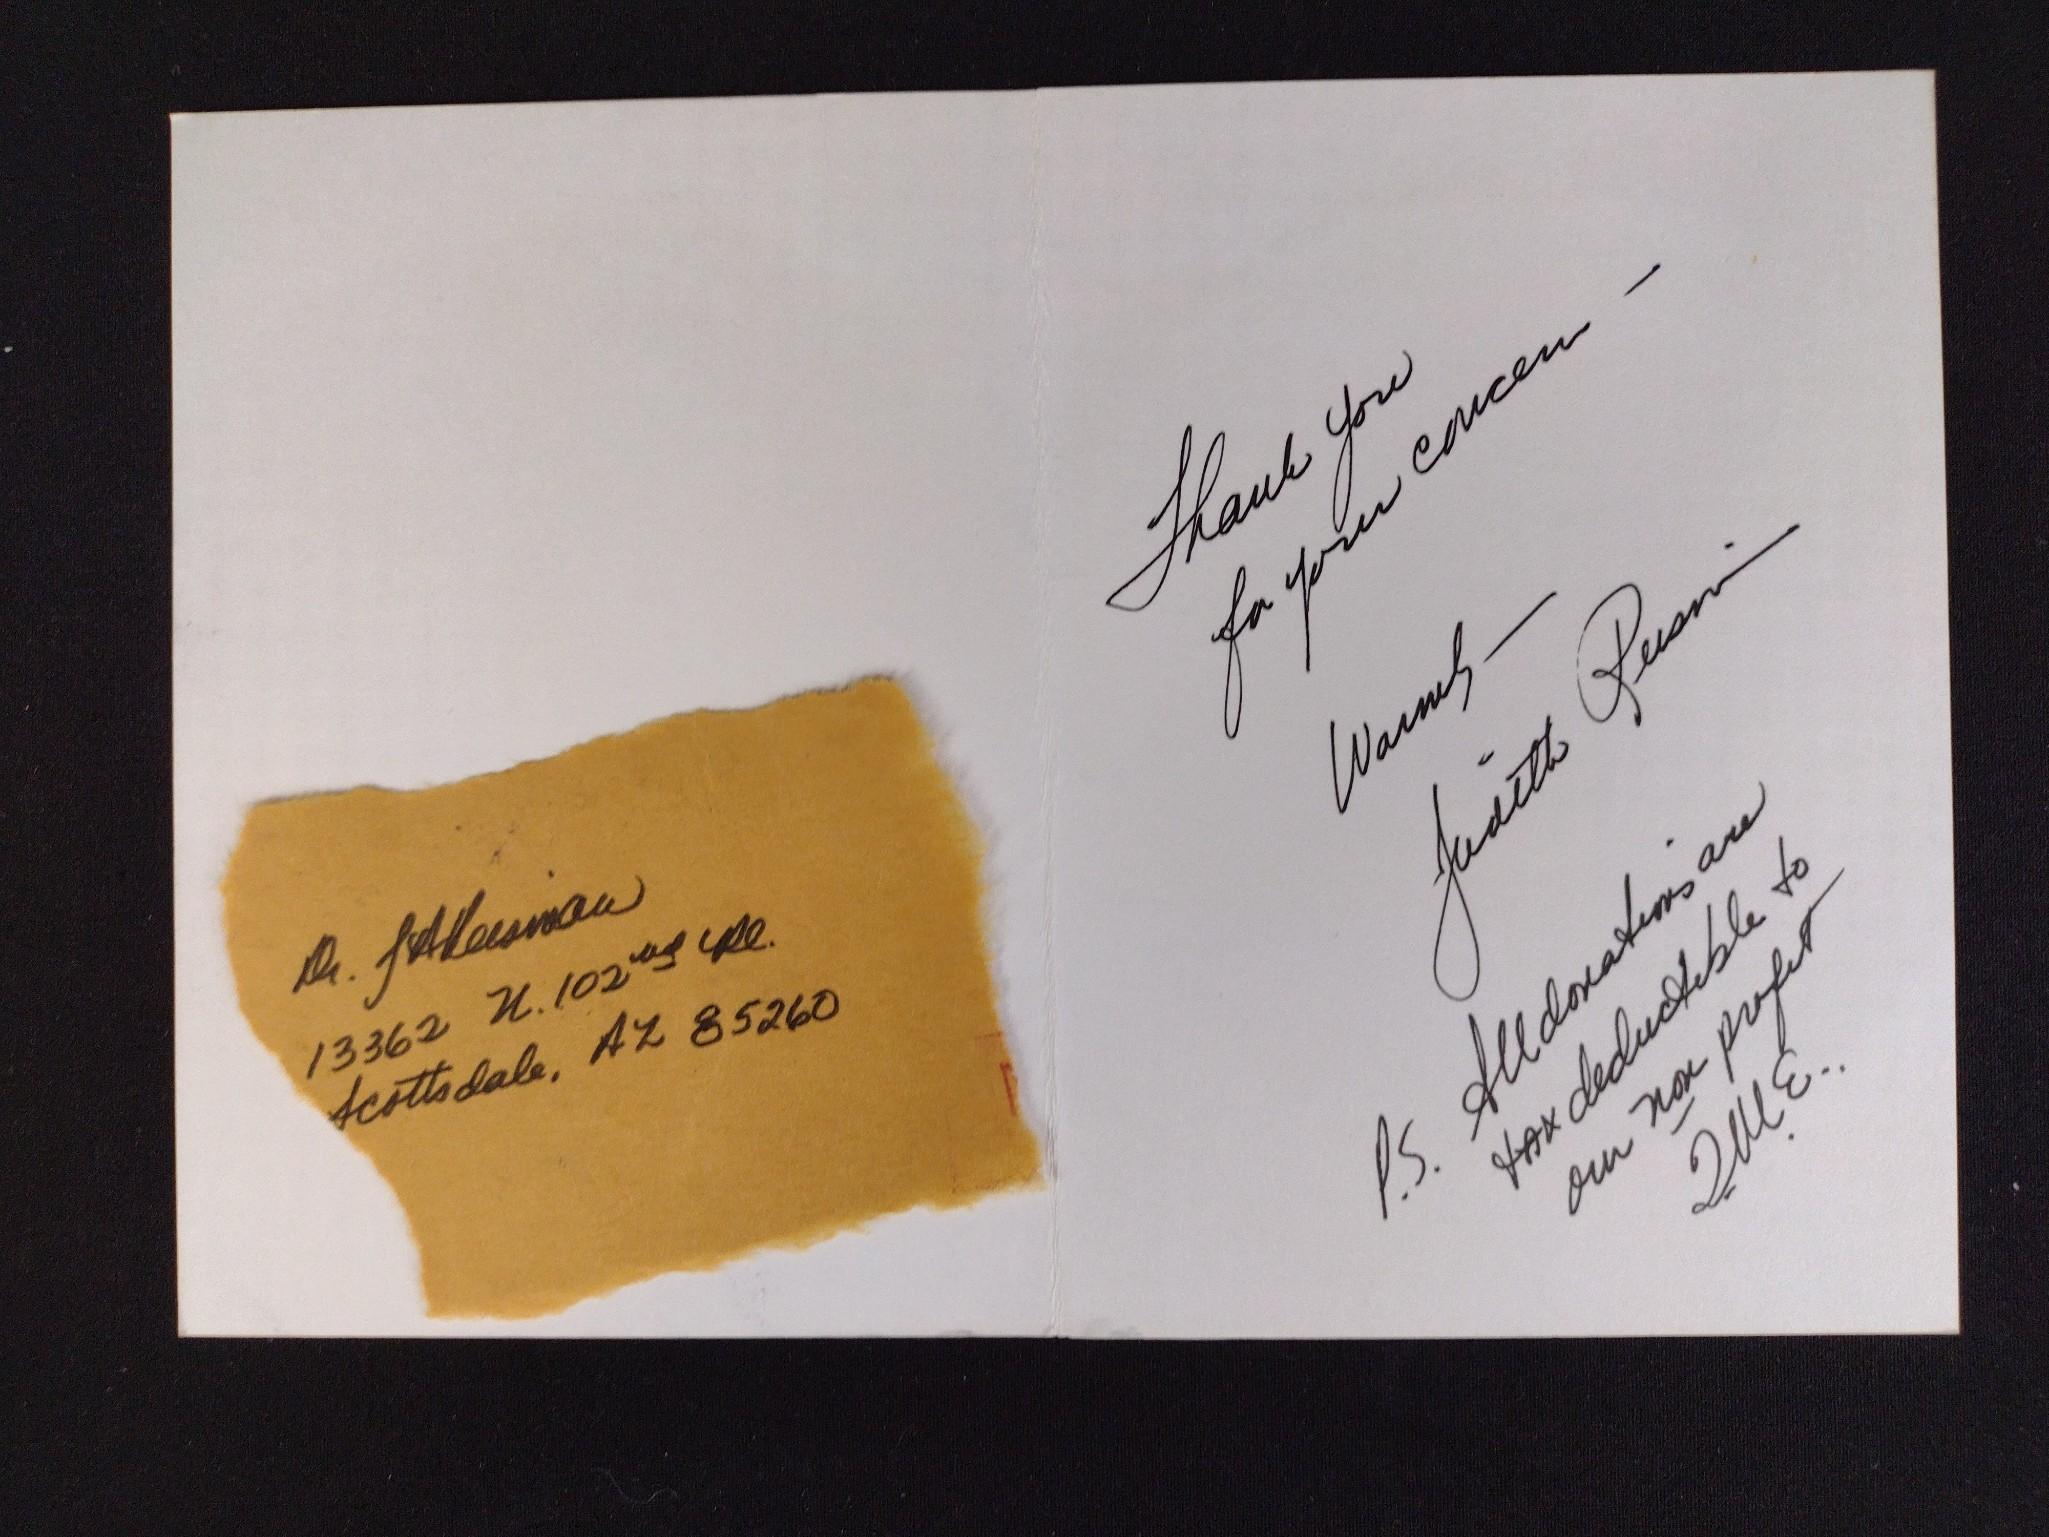 Dr. J A Reisman
13362 N. 102nd Pl.
Scottsdale, AZ 85260
Thank you
for your concern –
Warmly –
Judith Reisman
P.S. All donations are
tax deductible to
our non profit
I.M.E..